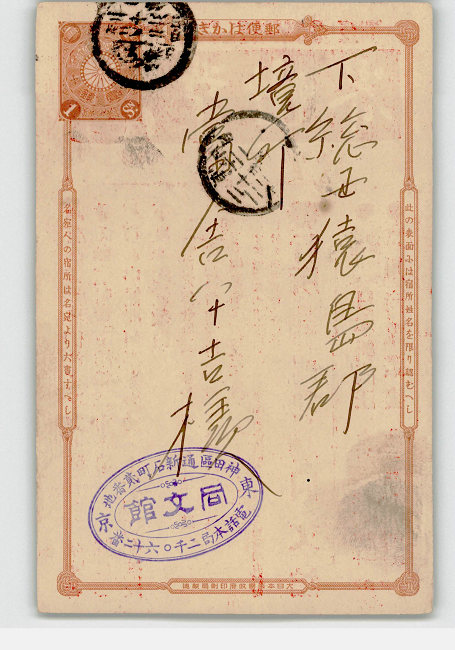 郵便はかき
下総国猿島郡
境町
吉八十吉様
此の表面には宿所姓名を限り認むへし
名宛人の宿所は名児より大書すへし
神田區通新石町貳番地
東京
同文館
電話本局二千〇六十二番
大日本帝國政府印刷局製造